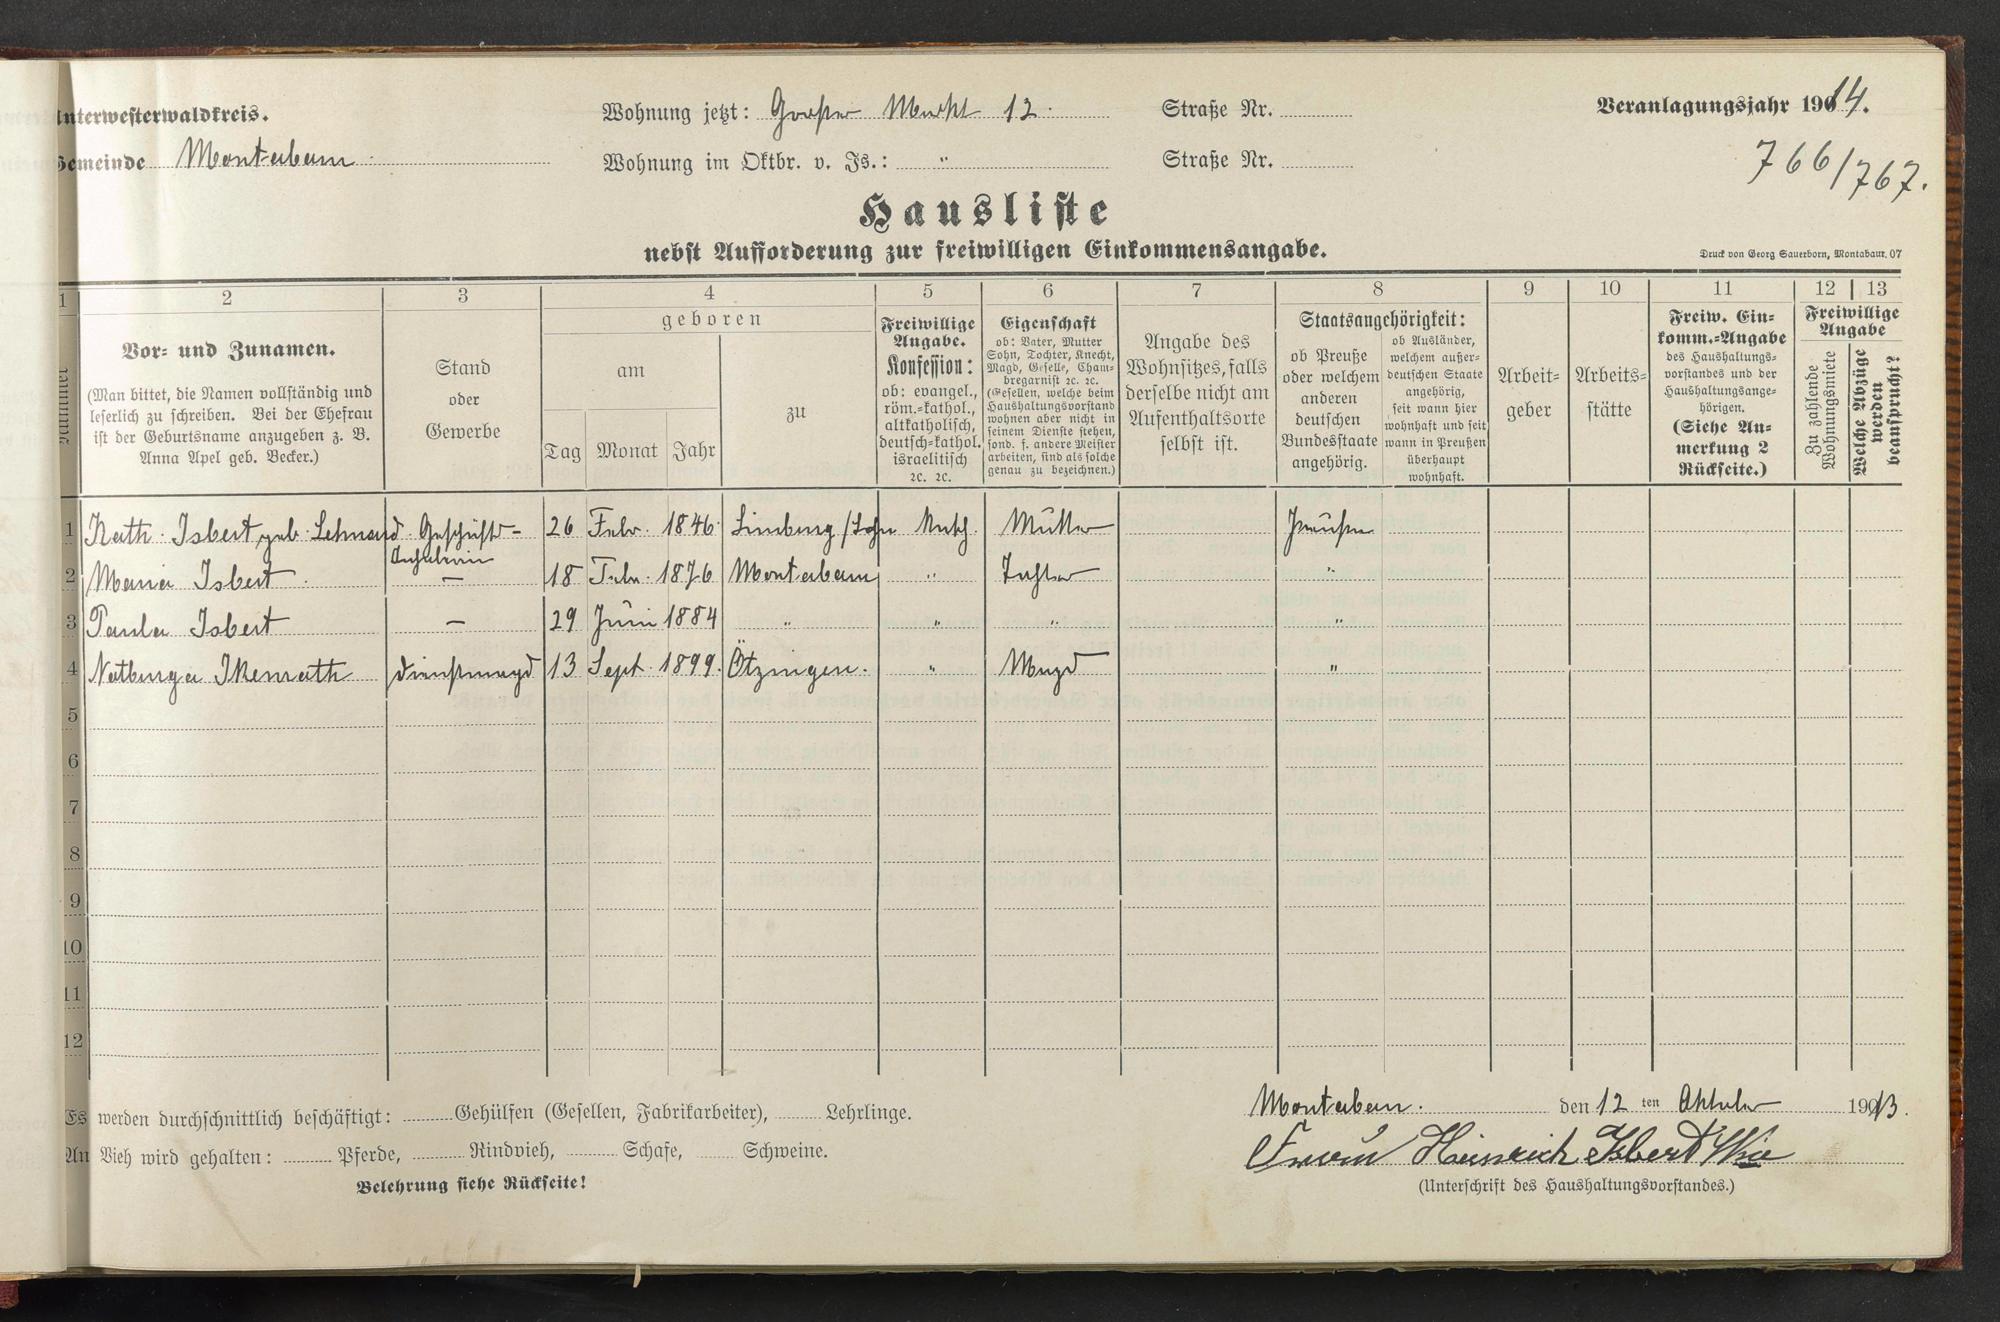 Unterwesterwaldkreis.
Gemeinde Montabaur
Wohnung jetzt: Großer Markt 12. Straße Nr.
Wohnung im Oktbr. v. Js.: " Straße Nr.
Veranlagungsjahr 1914.
766/767.
Hausliste
nebst Aufforderung zur freiwilligen Einkommensangabe.
Druck von Georg Sauerborn, Montabaur. 07
1 2 3 4 5 6 7 8 9 10 11 12 13
Nummer
Vor- und Zunamen.
(Man bittet, die Namen vollständig und
leserlich zu schreiben. Bei der Ehefrau
ist der Geburtsname anzugeben z. B.
Anna Apel geb. Becker.)
Stand
oder
Gewerbe
geboren
am
Tag Monat Jahr
zu
Freiwillige
Angabe.
Konfession:
ob: evangel.,
röm.-kathol.,
altkatholisch,
deutsch-kathol.
israelitisch
2c. 2c.
Eigenschaft
ob: Vater, Mutter
Sohn, Tochter, Knecht,
Magd, Geselle, Cham-
bregarnist 2c. 2c.
(Gesellen, welche beim
Haushaltungsvorstand
wohnen aber nicht in
seinem Dienste stehen,
sond. f. andere Meister
arbeiten, sind als solche
genau zu bezeichnen.)
Angabe des
Wohnsitzes, falls
derselbe nicht am
Aufenthaltsorte
selbst ist.
Staatsangehörigkeit:
ob Preuße
oder welchem
anderen
deutschen
Bundesstaate
angehörig.
ob Ausländer,
welchem außer-
deutschen Staate
angehörig,
seit wann hier
wohnhaft und seit
wann in Preußen
überhaupt
wohnhaft.
Arbeit-
geber
Arbeits-
stätte
Freiw. Ein-
komm.-Angabe
des Haushaltungs-
vorstandes und der
Haushaltungsange-
hörigen.
(Siehe An-
merkung 2
Rückseite.)
Freiwillige
Angabe
Zu zahlende
Wohnungsmiete
Welche Abzüge
werden
beansprucht?
1 Kath. Isbert geb. Lehnard Geschäfts- 26 Febr. 1846 Limburg / Lahn Kath. Mutter Preußen
Inhaberin
2 Maria Isbert — 18 Febr. 1876 Montabaur " Tochter "
3 Paula Isbert — 29 Juni 1884 " " " "
4 Dienstmagd 13 Sept. 1899. Ötzingen. " Magd "
5
6
7
8
9
10
11
12
Es werden durchschnittlich beschäftigt: Gehülfen (Gesellen, Fabrikarbeiter), Lehrlinge.
An Vieh wird gehalten: Pferde, Rindvieh, Schafe, Schweine.
Belehrung siehe Rückseite!
Montabaur. den 12 ten Oktober 1913.
Frau Heinrich Isbert Wwe
(Unterschrift des Haushaltungsvorstandes.)